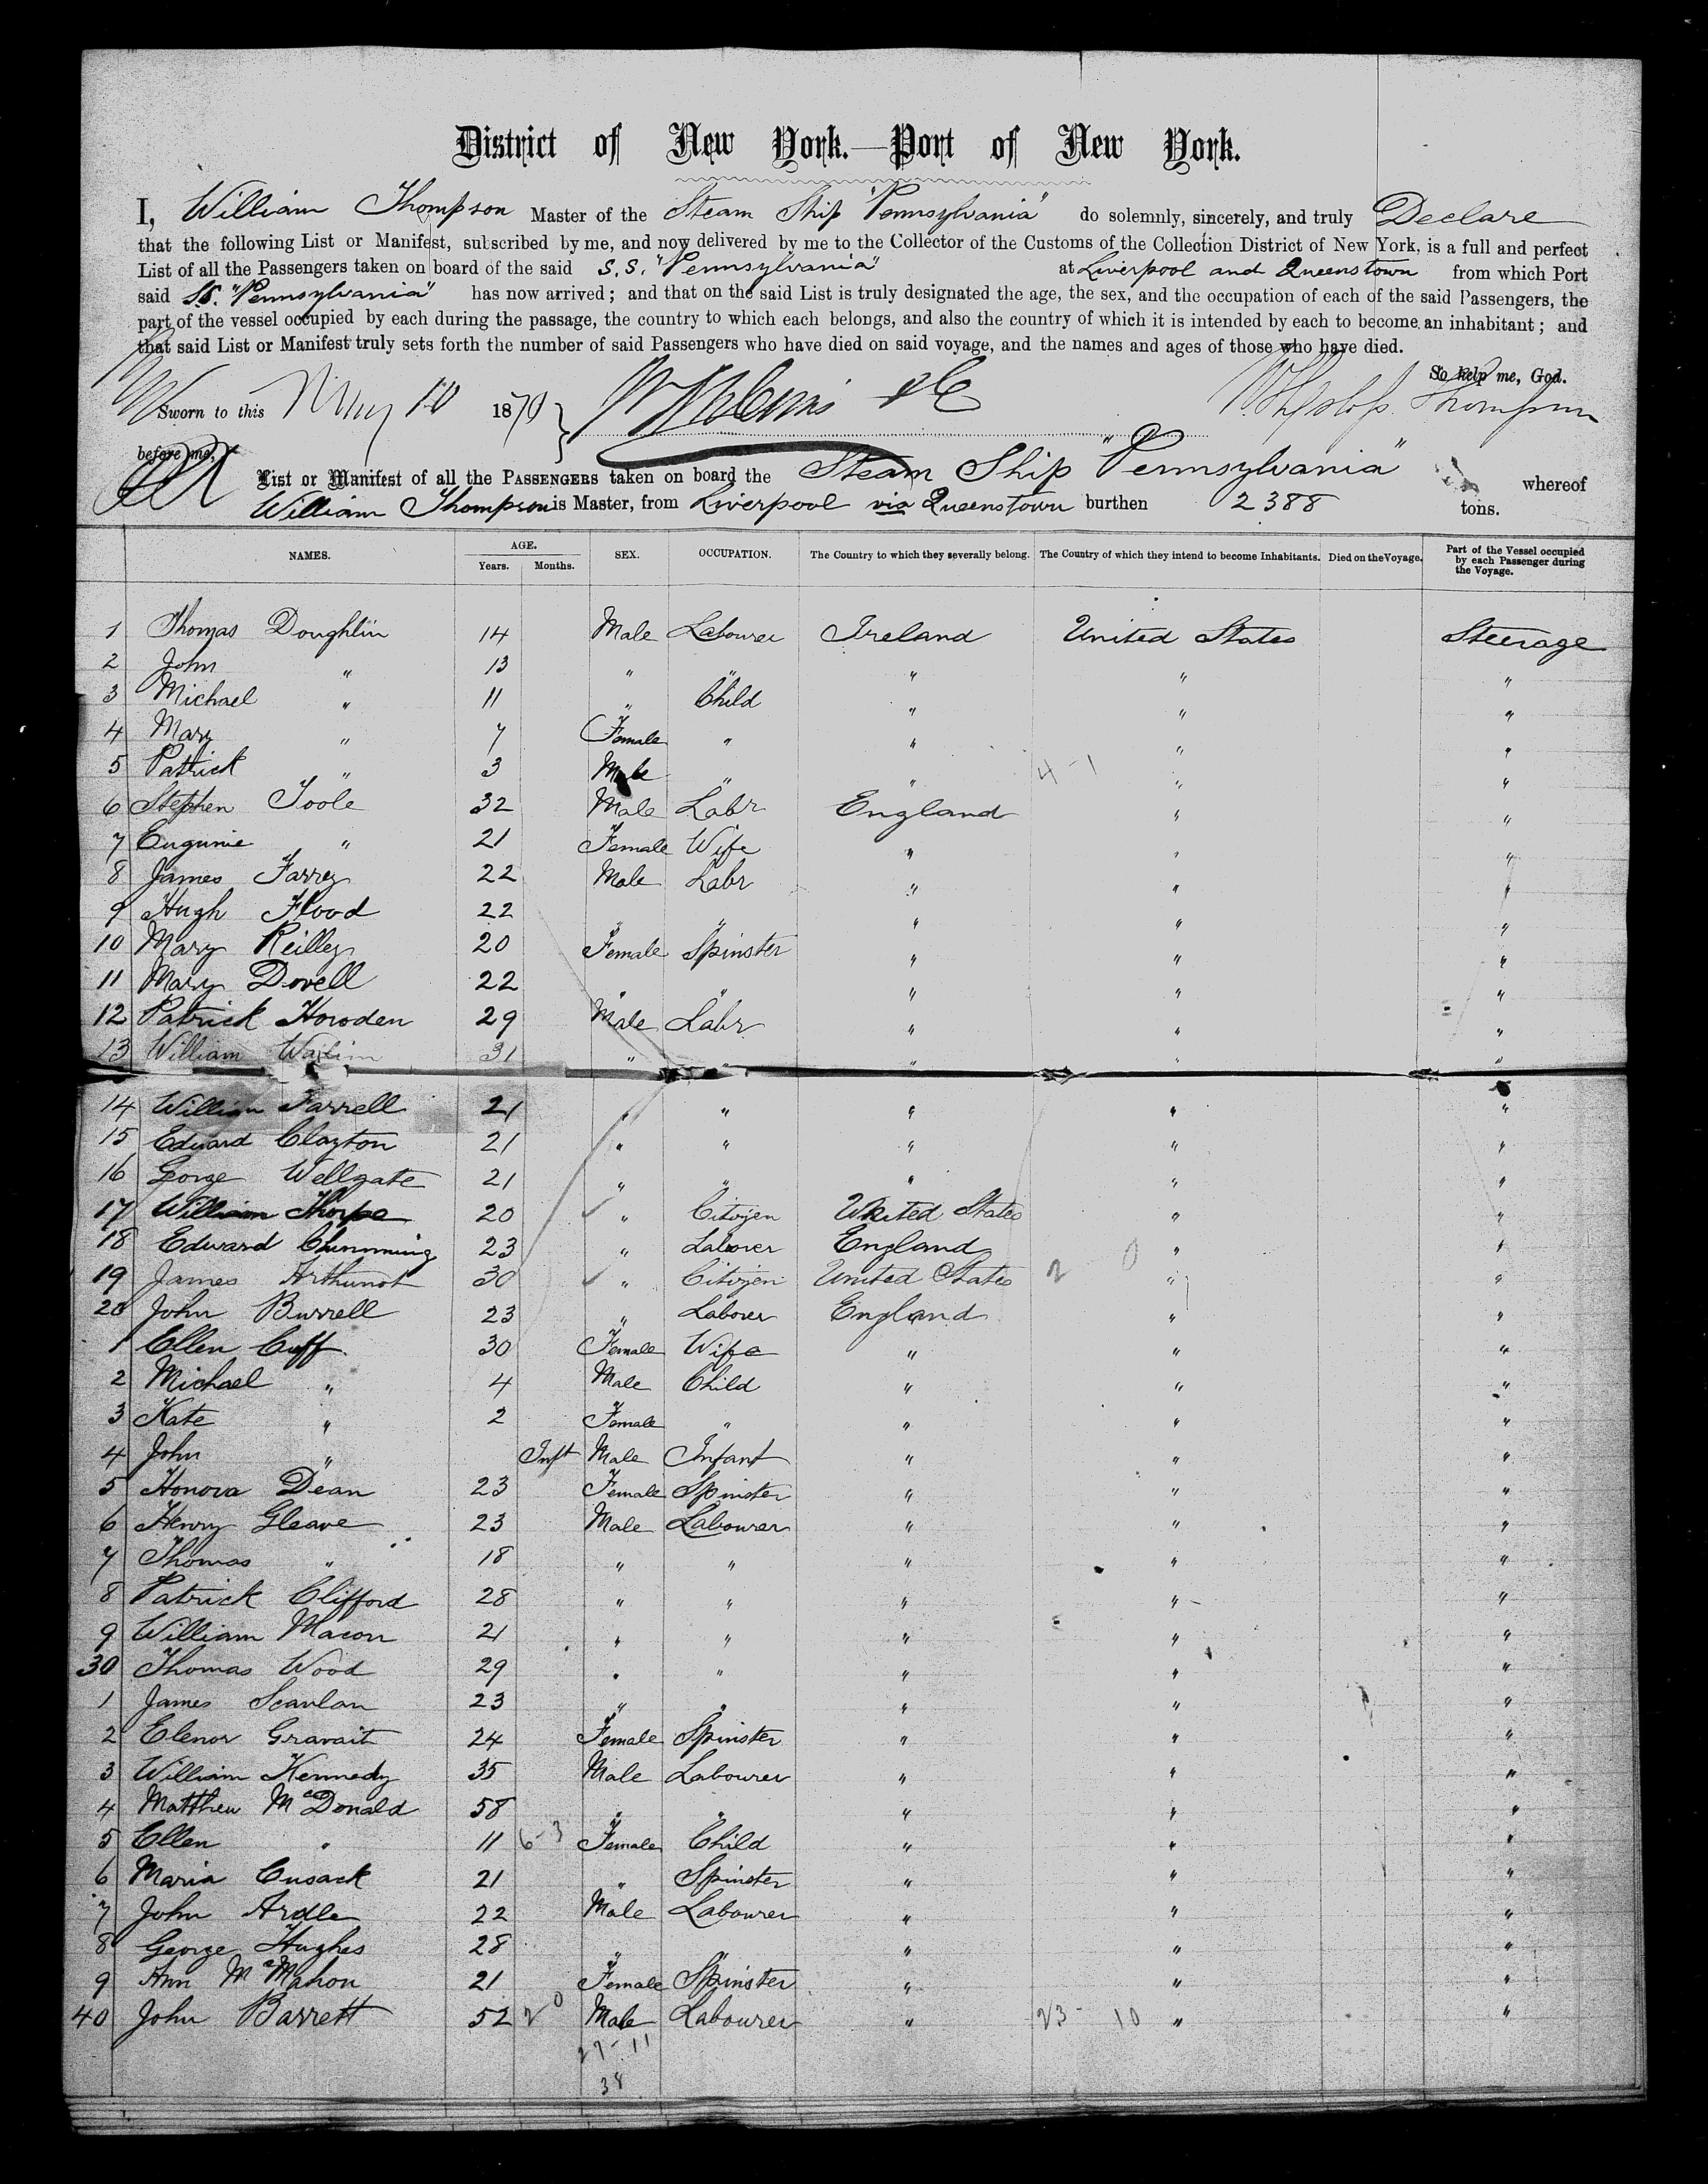 District of New York.—Port of New York.
I, William Thompson Master of the Steam Ship "Pennsylvania" do solemnly, sincerely, and truly Declare
that the following List or Manifest, subscribed by me, and now delivered by me to the Collector of the Customs of the Collection District of New York, is a full and perfect
List of all the Passengers taken on board of the said S.S. "Pennsylvania" at Liverpool and Queenstown from which Port
said S.S. "Pennsylvania" has now arrived; and that on the said List is truly designated the age, the sex, and the occupation of each of the said Passengers, the
part of the vessel occupied by each during the passage, the country to which each belongs, and also the country of which it is intended by each to become an inhabitant; and
that said List or Manifest truly sets forth the number of said Passengers who have died on said voyage, and the names and ages of those who have died.
So help me, God.
Sworn to this May 10 1870 Thompson
before me,
List or Manifest of all the PASSENGERS taken on board the Steam Ship "Pennsylvania" whereof
William Thompson is Master, from Liverpool via Queenstown burthen 2388 tons.
NAMES. AGE. Years. Months. SEX. OCCUPATION. The Country to which they severally belong. The Country of which they intend to become Inhabitants. Died on the Voyage. Part of the Vessel occupied by each Passenger during the Voyage.
1 Thomas Doughlin 14 Male Labourer Ireland United States Steerage
2 John " 13 " " " " "
3 Michael " 11 " Child " " "
4 Mary " 7 Female " " " "
5 Patrick " 3 Male " " 4 - 1 " "
6 Stephen Toole 32 Male Labr England " "
7 Eugunie " 21 Female Wife " " "
8 James Farrey 22 Male Labr " " "
9 Hugh Flood 22 " " " " "
10 Mary Reilley 20 Female Spinster " " "
11 Mary Dovell 22 " " " " "
12 Patrick Howden 29 Male Labr " " "
13 William 31 " " " " "
14 William Farrell 21 " " " " "
15 Edward Clayton 21 " " " " "
16 George Wellgate 21 " " " " "
17 William Thorpe 20 " Citizen United States " "
18 Edward Chimming 23 " Laborer England " "
19 James Arthunot 30 " Citizen United States 2 0 " "
20 John Burrell 23 " Laborer England " "
1 Ellen Cuff 30 Female Wife " " "
2 Michael " 4 Male Child " " "
3 Kate " 2 Female " " " "
4 John " Inft Male Infant " " "
5 Honora Dean 23 Female Spinster " " "
6 Henry Gleave 23 Male Labourer " " "
7 Thomas " 18 " " " " "
8 Patrick Clifford 28 " " " " "
9 William Macon 21 " " " " "
30 Thomas Wood 29 " " " " "
1 James Scanlan 23 " " " " "
2 Elenor Gravait 24 Female Spinster " " "
3 William Kennedy 35 Male Labourer " " "
4 Matthew McDonald 58 " " " " "
5 Ellen " 11 6-3 Female Child " " "
6 Maria Cusack 21 " Spinster " " "
7 John Ardle 22 Male Labourer " " "
8 George Hughes 28 " " " " "
9 Ann McMahon 21 Female Spinster " " "
40 John Barrett 52 2 0 Male Labourer " 23 - 10 " "
27 - 11
38